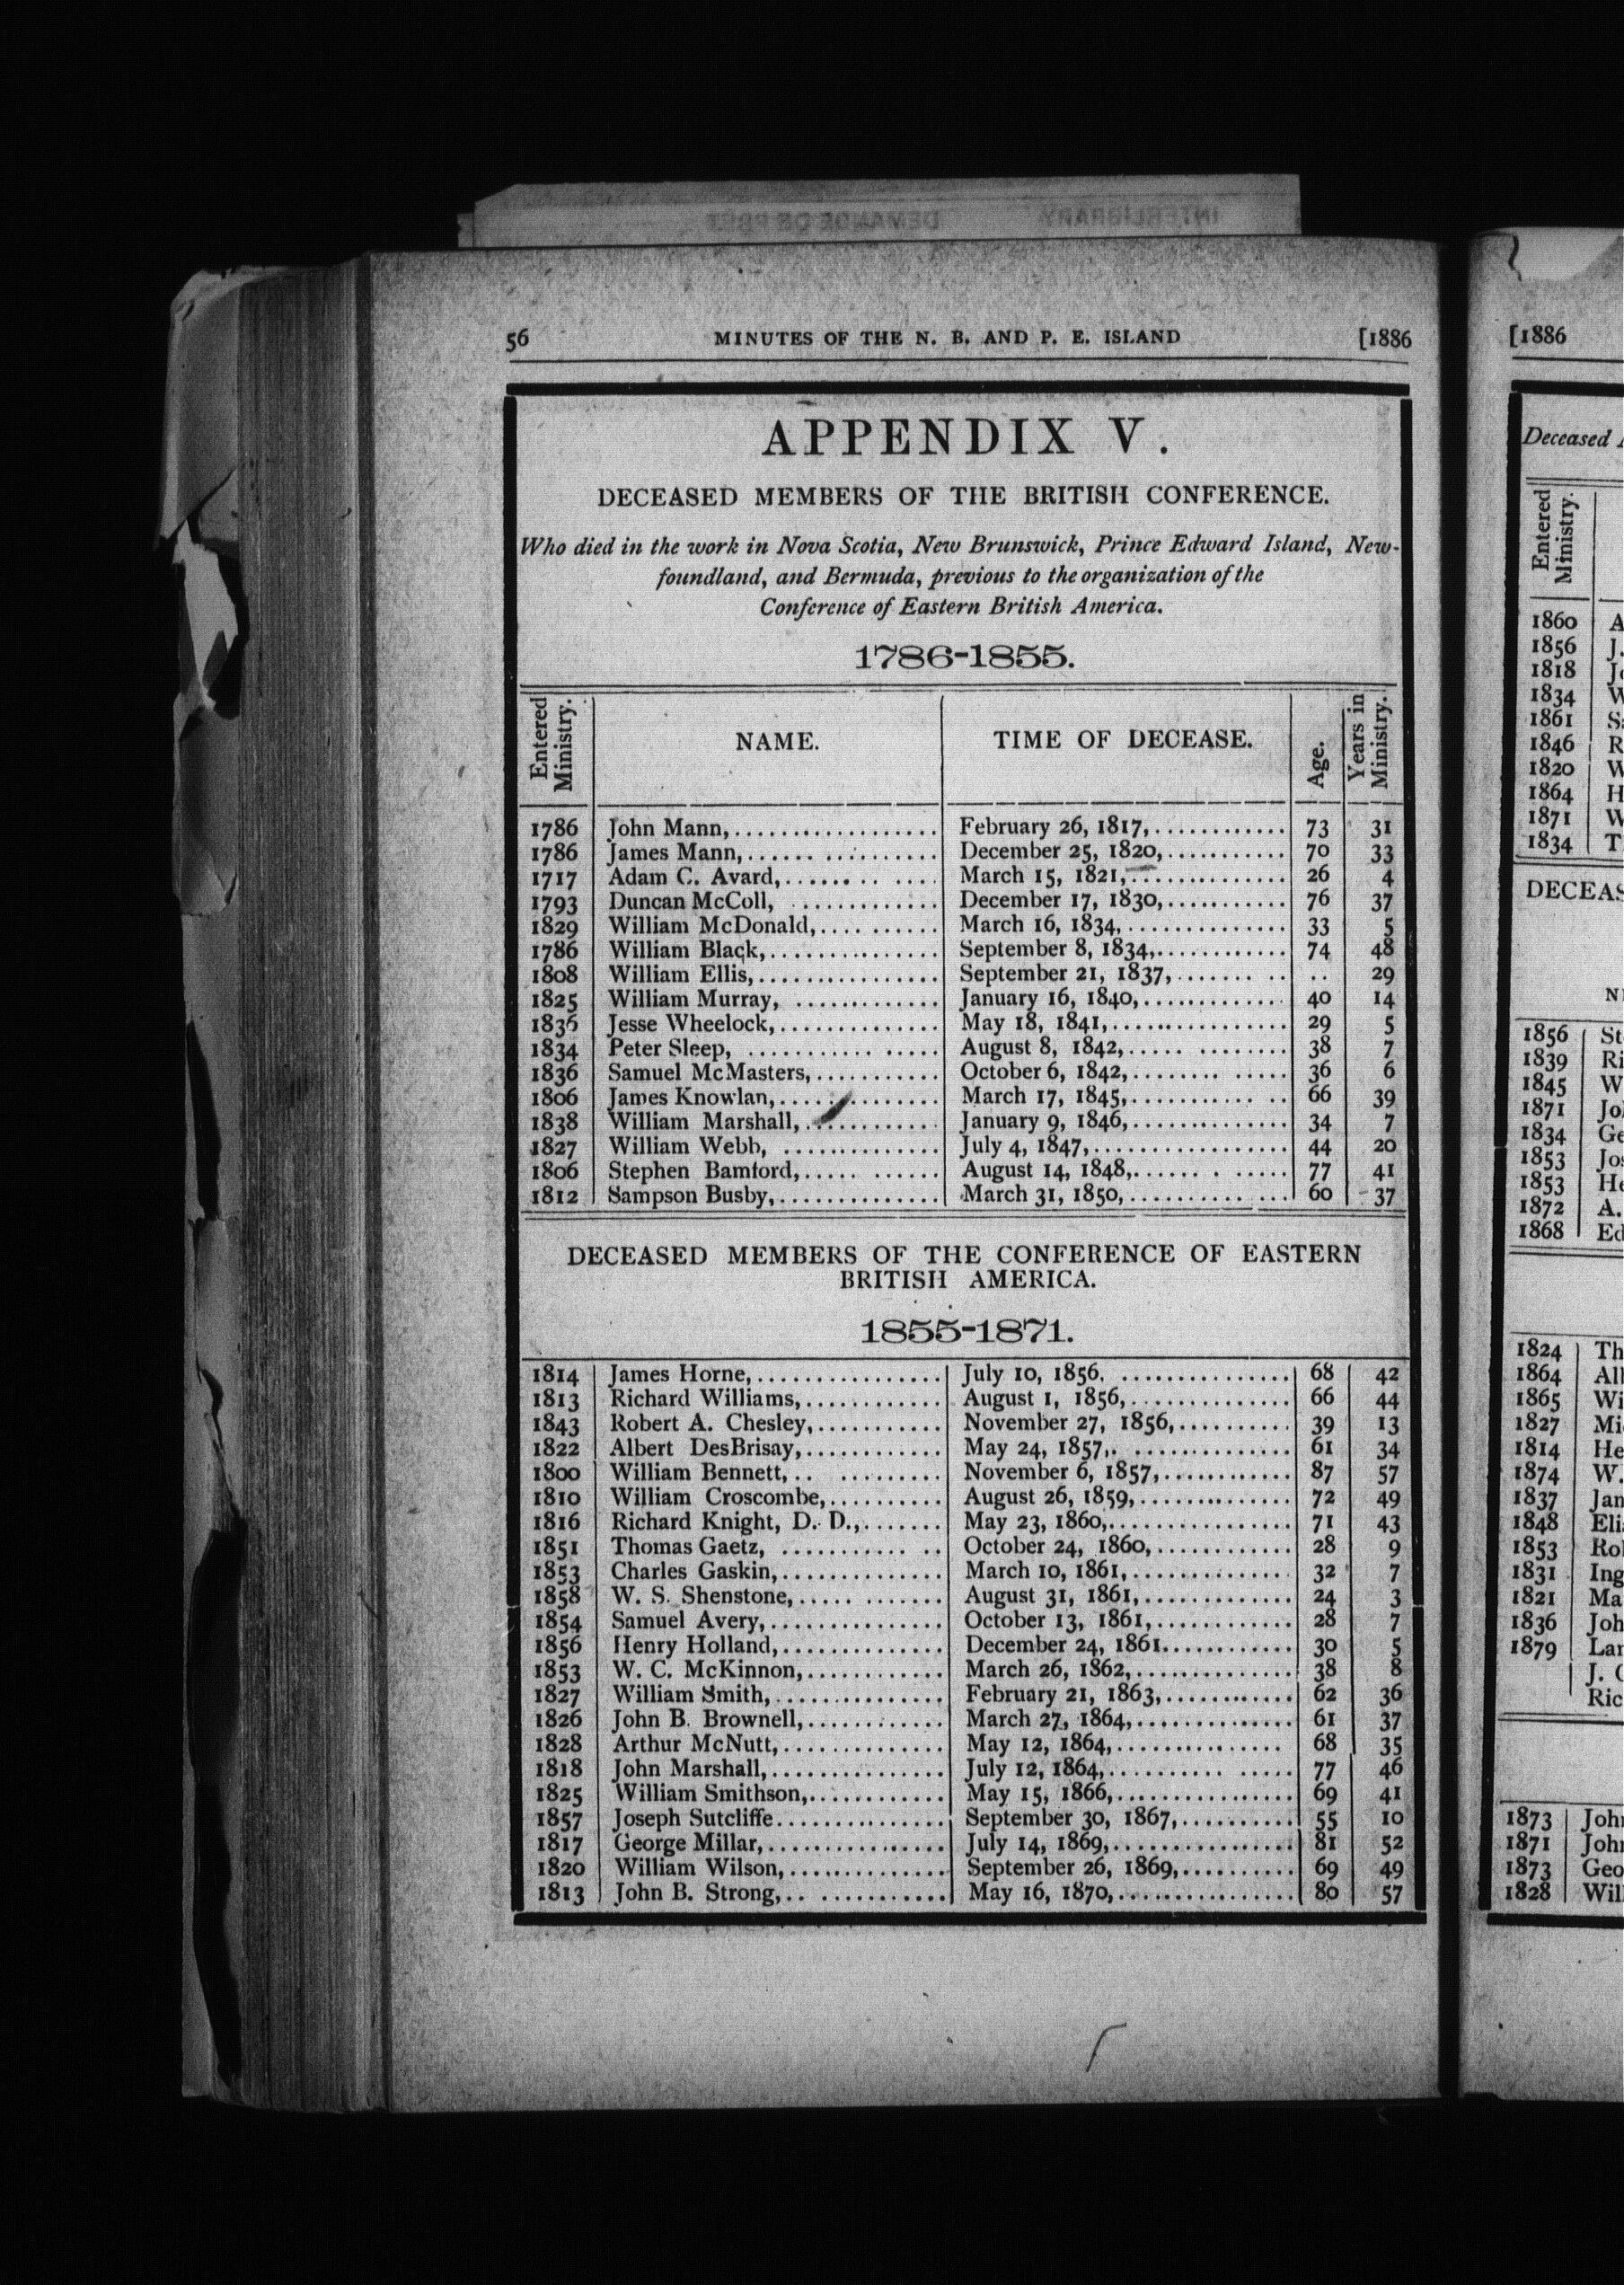 INTERLIBRARY DEMANDE DE PRÊT
56 MINUTES OF THE N. B. AND P. E. ISLAND [1886
APPENDIX V.
DECEASED MEMBERS OF THE BRITISH CONFERENCE.
Who died in the work in Nova Scotia, New Brunswick, Prince Edward Island, New-
foundland, and Bermuda, previous to the organization of the
Conference of Eastern British America.
1786-1855.
Entered Ministry. NAME. TIME OF DECEASE. Age. Years in Ministry.
1786 John Mann,.................. February 26, 1817,............ 73 31
1786 James Mann,...... .......... December 25, 1820,........... 70 33
1717 Adam C. Avard,....... .. .... March 15, 1821,.............. 26 4
1793 Duncan McColl, ............. December 17, 1830,........... 76 37
1829 William McDonald,.... ...... March 16, 1834,.............. 33 5
1786 William Black,............... September 8, 1834,............ 74 48
1808 William Ellis,................ September 21, 1837,....... .. .. 29
1825 William Murray, ............ January 16, 1840,............. 40 14
1836 Jesse Wheelock,.............. May 18, 1841,................ 29 5
1834 Peter Sleep, ........... ..... August 8, 1842,..... ........ 38 7
1836 Samuel McMasters,........... October 6, 1842,........ ..... 36 6
1806 James Knowlan,.............. March 17, 1845,........... .. 66 39
1838 William Marshall,............ January 9, 1846,.............. 34 7
1827 William Webb, ............. July 4, 1847,................. 44 20
1806 Stephen Bamford,..... ...... August 14, 1848,...... . ..... 77 41
1812 Sampson Busby,.............. March 31, 1850,.............. 60 37
DECEASED MEMBERS OF THE CONFERENCE OF EASTERN
BRITISH AMERICA.
1855-1871.
1814 James Horne,................ July 10, 1856. ............... 68 42
1813 Richard Williams,............ August 1, 1856,.............. 66 44
1843 Robert A. Chesley,........... November 27, 1856,.......... 39 13
1822 Albert DesBrisay,............ May 24, 1857,. ............. 61 34
1800 William Bennett,.. ......... November 6, 1857,............ 87 57
1810 William Croscombe,.......... August 26, 1859,............. 72 49
1816 Richard Knight, D. D.,....... May 23, 1860,................ 71 43
1851 Thomas Gaetz, ........... .. October 24, 1860,............ 28 9
1853 Charles Gaskin,.............. March 10, 1861,.............. 32 7
1858 W. S. Shenstone,..... ....... August 31, 1861,............. 24 3
1854 Samuel Avery,............... October 13, 1861,............ 28 7
1856 Henry Holland,.............. December 24, 1861........... 30 5
1853 W. C. McKinnon,............ March 26, 1862,.............. 38 8
1827 William Smith,.............. February 21, 1863,............ 62 36
1826 John B. Brownell,............ March 27, 1864,.............. 61 37
1828 Arthur McNutt,.............. May 12, 1864,............... 68 35
1818 John Marshall,............... July 12, 1864,.......... ..... 77 46
1825 William Smithson,............ May 15, 1866,................ 69 41
1857 Joseph Sutcliffe............... September 30, 1867,.......... 55 10
1817 George Millar,............... July 14, 1869,................ 81 52
1820 William Wilson,.............. September 26, 1869,.......... 69 49
1813 John B. Strong,.. ........... May 16, 1870,................ 80 57
[1886
Deceased
Entered Ministry.
1860 A
1856 J.
1818 Jo
1834 W
1861 S
1846 R
1820 W
1864 H
1871 W
1834 T
DECEAS
N
1856 St
1839 Ri
1845 W
1871 Jo
1834 Ge
1853 Jos
1853 He
1872 A.
1868 Ed
1824 Th
1864 All
1865 Wi
1827 Mi
1814 He
1874 W.
1837 Jan
1848 Eli
1853 Ro
1831 Ing
1821 Ma
1836 Joh
1879 Lan
J. C
Ric
1873 John
1871 John
1873 Geo
1828 Wil